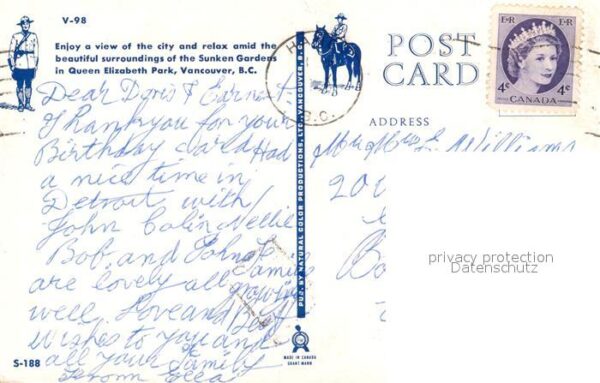 V-98
Enjoy a view of the city and relax amid the
beautiful surroundings of the Sunken Gardens
in Queen Elizabeth Park, Vancouver, B.C.
Dear Doris & Earnest.
Thank you for your
Birthday card Had
a nice time in
Detroit with
John Colin Nellie
Bob and
are lovely all growing
well. Love and Best
wishes to you and
all your Family
From Ella
S-188
PUB. BY NATURAL COLOR PRODUCTIONS, LTD., VANCOUVER, B.C.
MADE IN CANADA
B.C.
POST
CARD
ADDRESS
E II R E II R
4c 4c
CANADA
Mr & Mrs E. Williams
200
privacy protection
Datenschutz